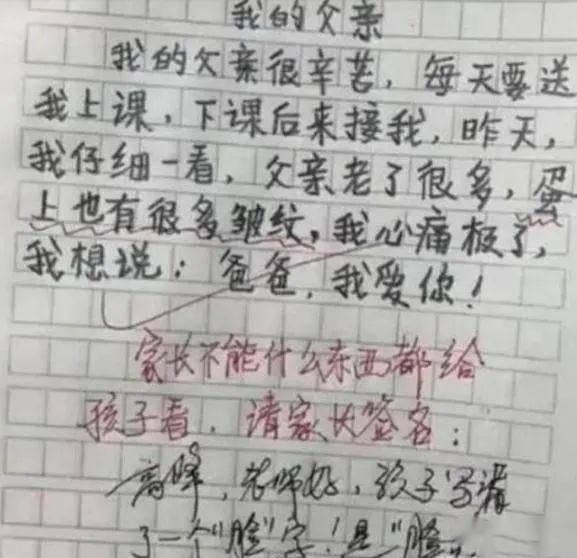 我的父亲
我的父亲很辛苦，每天要送
我上课，下课后来接我，昨天，
我仔细一看，父亲老了很多，蛋
上也有很多皱纹，我心痛极了，
我想说：爸爸，我爱你！
家长不能什么东西都给
孩子看，请家长签名：
高峰，老师好，孩子写错
了一个"脸"字！是"脸"